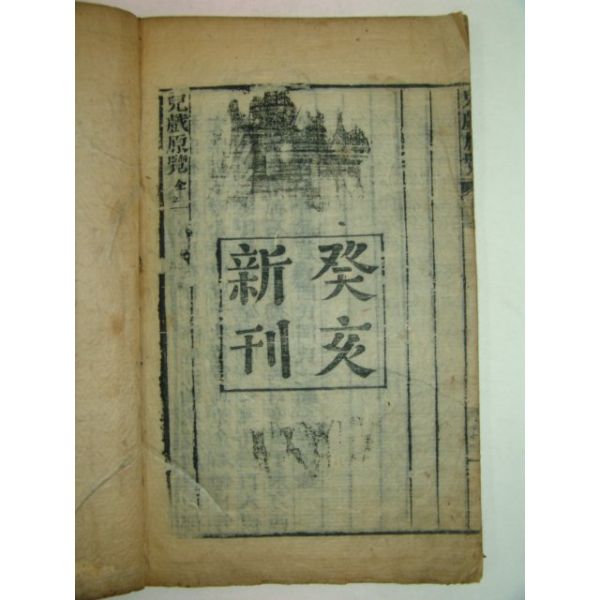 癸亥
新刊
兒戱原覽 全